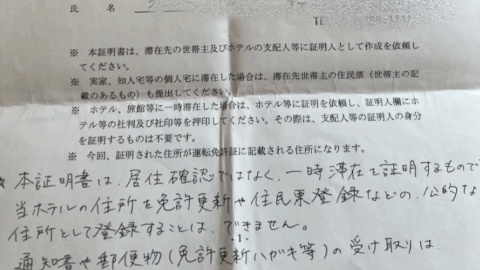 氏　　名
TE
※　本証明書は、滞在先の世帯主及びホテルの支配人等に証明人として作成を依頼し
てください。
※　実家、知人宅等の個人宅に滞在した場合は、滞在先世帯主の住民票（世帯主の記
載のあるもの）も提出してください。
※　ホテル、旅館等に一時滞在した場合は、ホテル等に証明を依頼し、証明人欄にホ
テル等の社判及び社印等を押印してください。その際は、支配人等の証明人の身分
を証明するものは不要です。
※　今回、証明された住所が運転免許証に記載される住所になります。
本証明書は、居住確認ではなく、一時滞在を証明するもので
当ホテルの住所を免許更新や住民票登録などの、公的な
住所として登録することは、できません。
-1-
通知書や郵便物(免許更新ハガキ等)の受け取りは